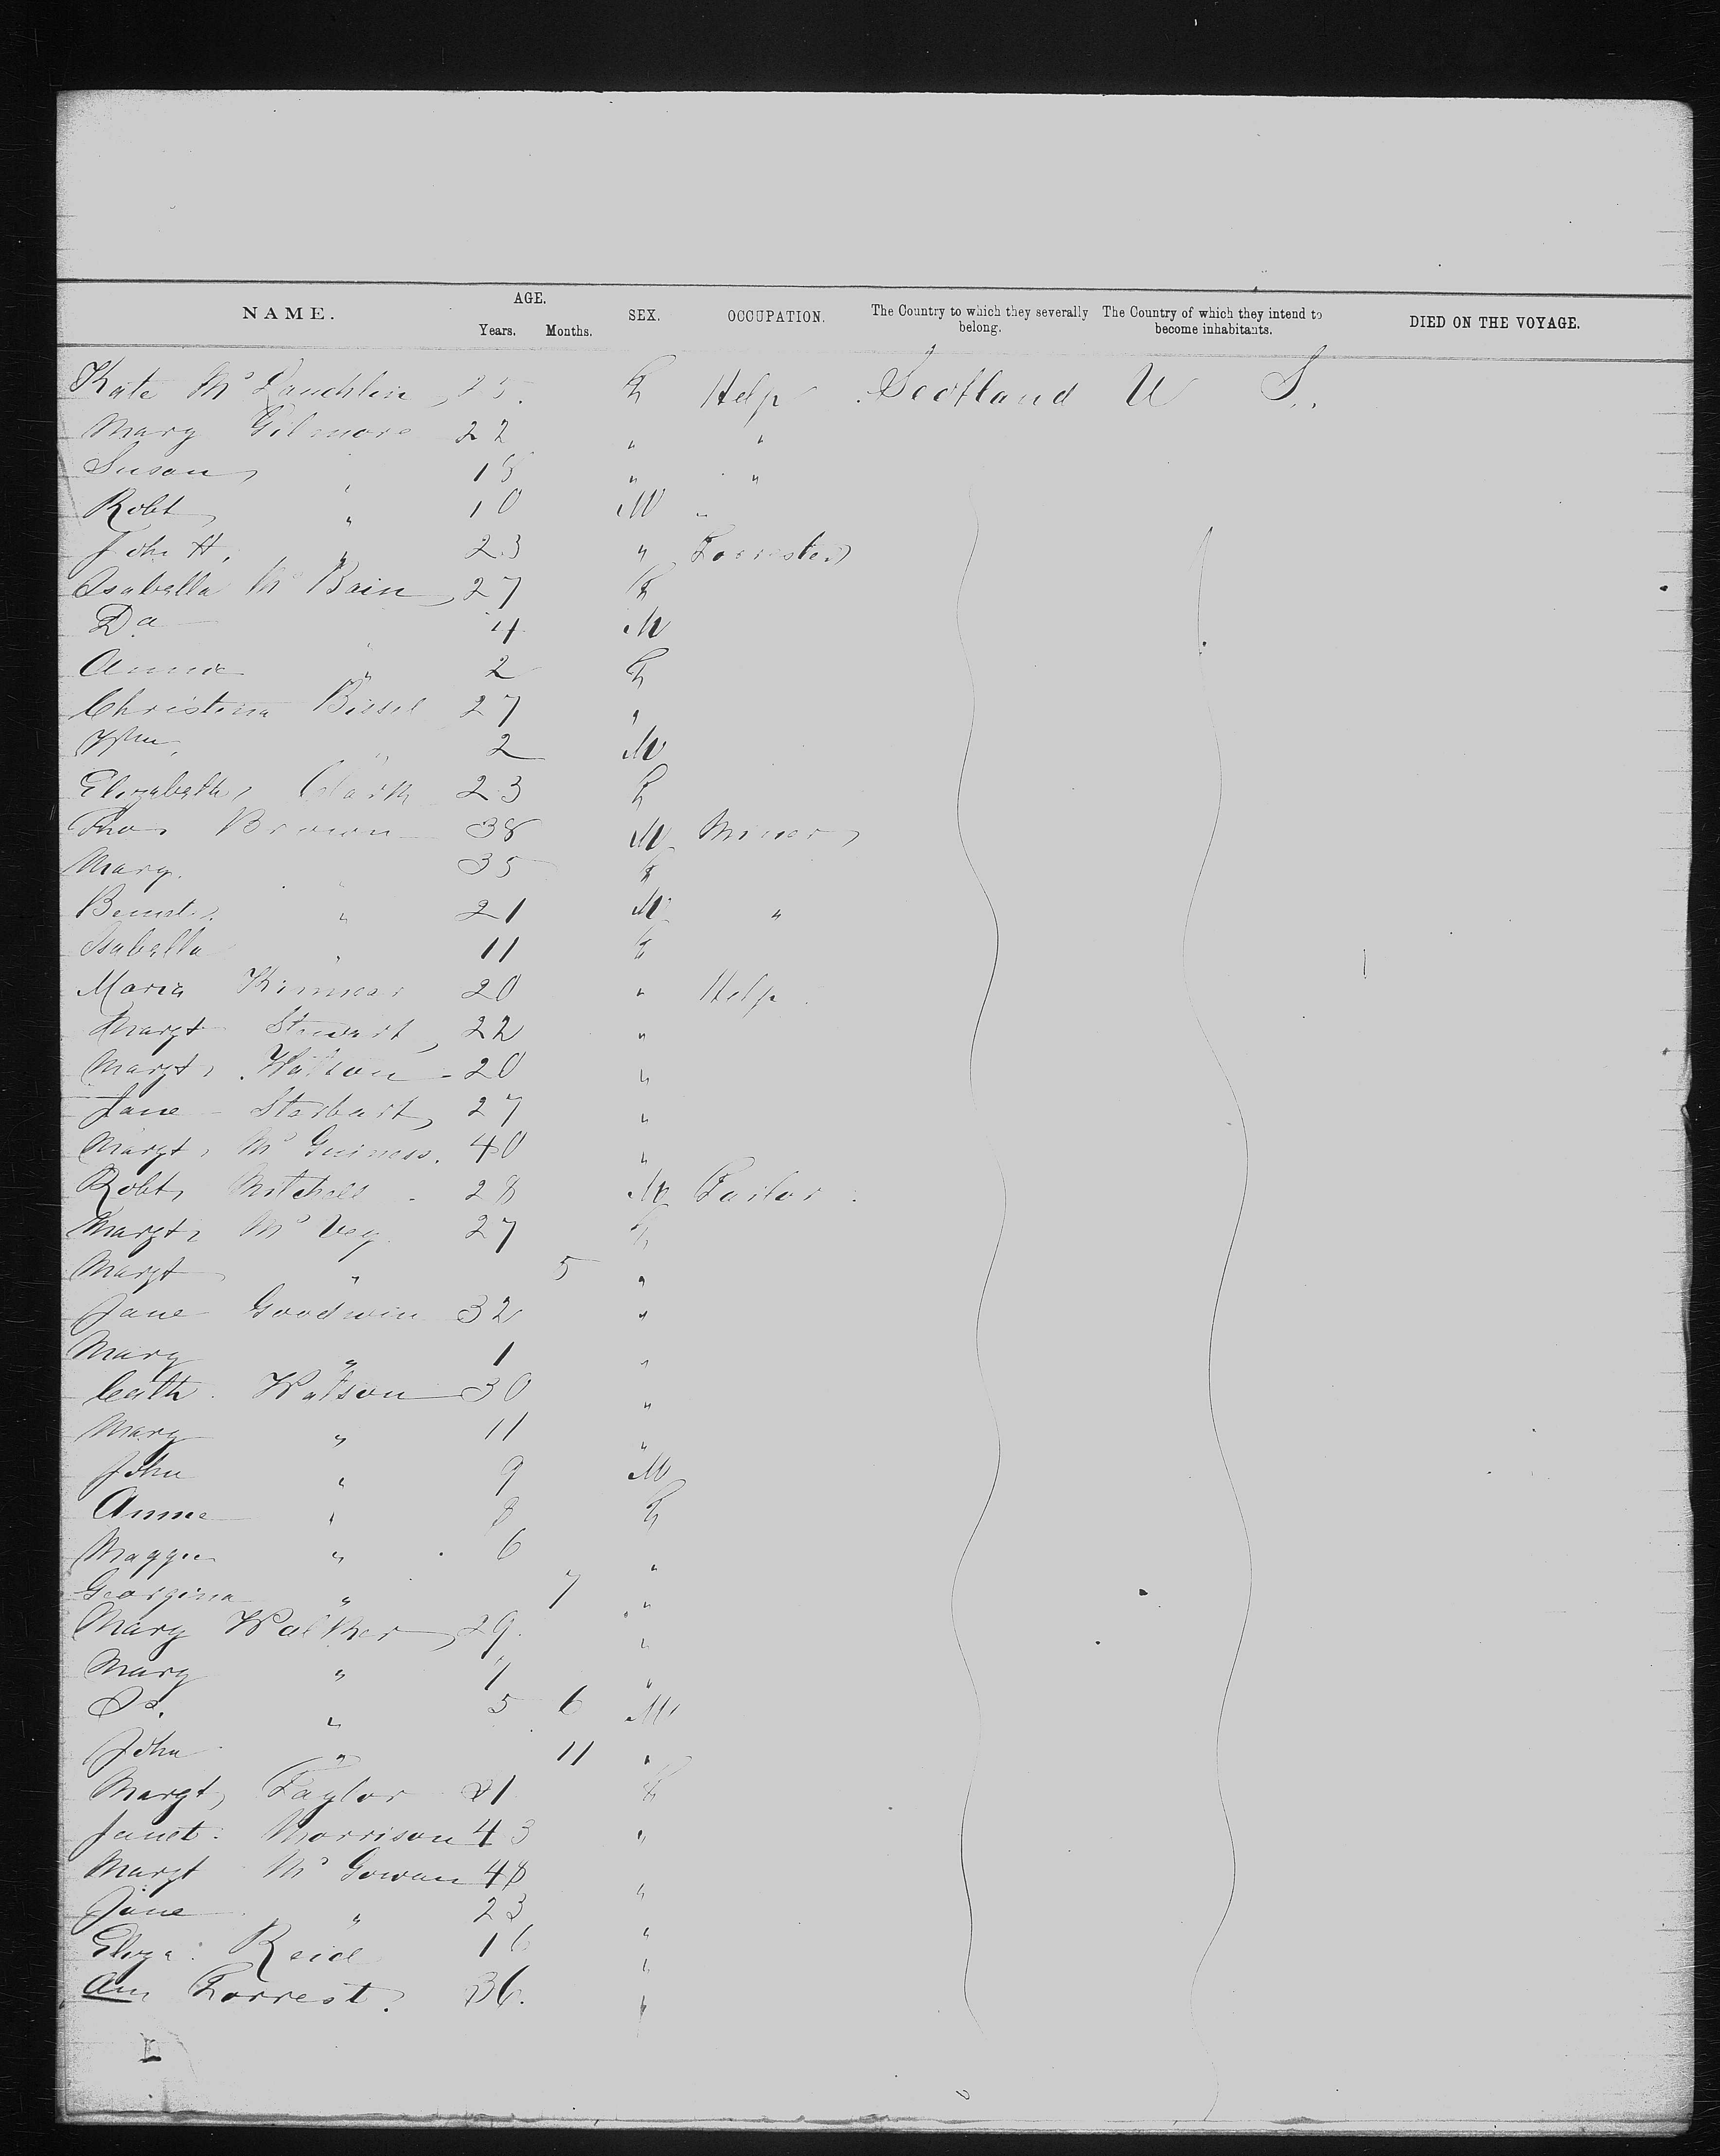 NAME. AGE. Years. Months. SEX. OCCUPATION. The Country to which they severally belong. The Country of which they intend to become inhabitants. DIED ON THE VOYAGE.
Kate Mc Lauchlin 25. F Help Scotland U S.
Mary Gilmore 22 " "
Susan " 18 " "
Robt " 10 M "
John H. " 23 " Forrester
Isabella Mc Bain 27 F
Da " 4 M
Annie " 2 F
Christina Bissel 27 "
Wm. " 2 M
Elizabeth Clark 23 F
Thos Brown 38 M Miner
Mary. " 35 F
" 21 M "
Isabella " 11 F
Maria Kinnear 20 " Help
Margt Stewart, 22 "
Margt, Watson 20 "
Jane Starbart, 27 "
Margt, Mc Guiness. 40 "
Robt, Mitchell 28 M Tailor
Margt, Mc Vey 27 F
Margt " 5 "
Jane Goodwin 32 "
Mary " 1 "
Cath. Watson 30 "
Mary " 11 "
John " 9 M
Anne " 8 F
Maggie " 6 "
Georgina " 7 "
Mary Walker 29. "
Mary " 7 "
" 5 6 M
John " 11 "
Margt, Taylor 21 F
Janet: Morrison 43 "
Margt Mc Gowan 48 "
Jane " 23 "
Eliza: Reid 16 "
Ann Forrest. 36. "